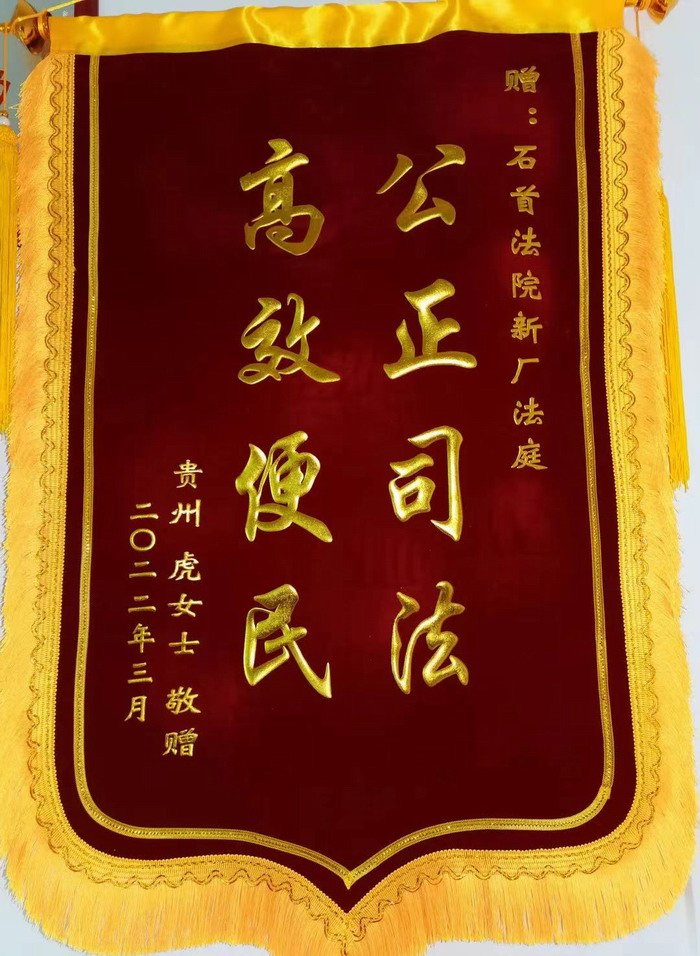 赠：石首法院新厂法庭
公正司法
高效便民
贵州 虎女士 敬赠
二〇二二年三月